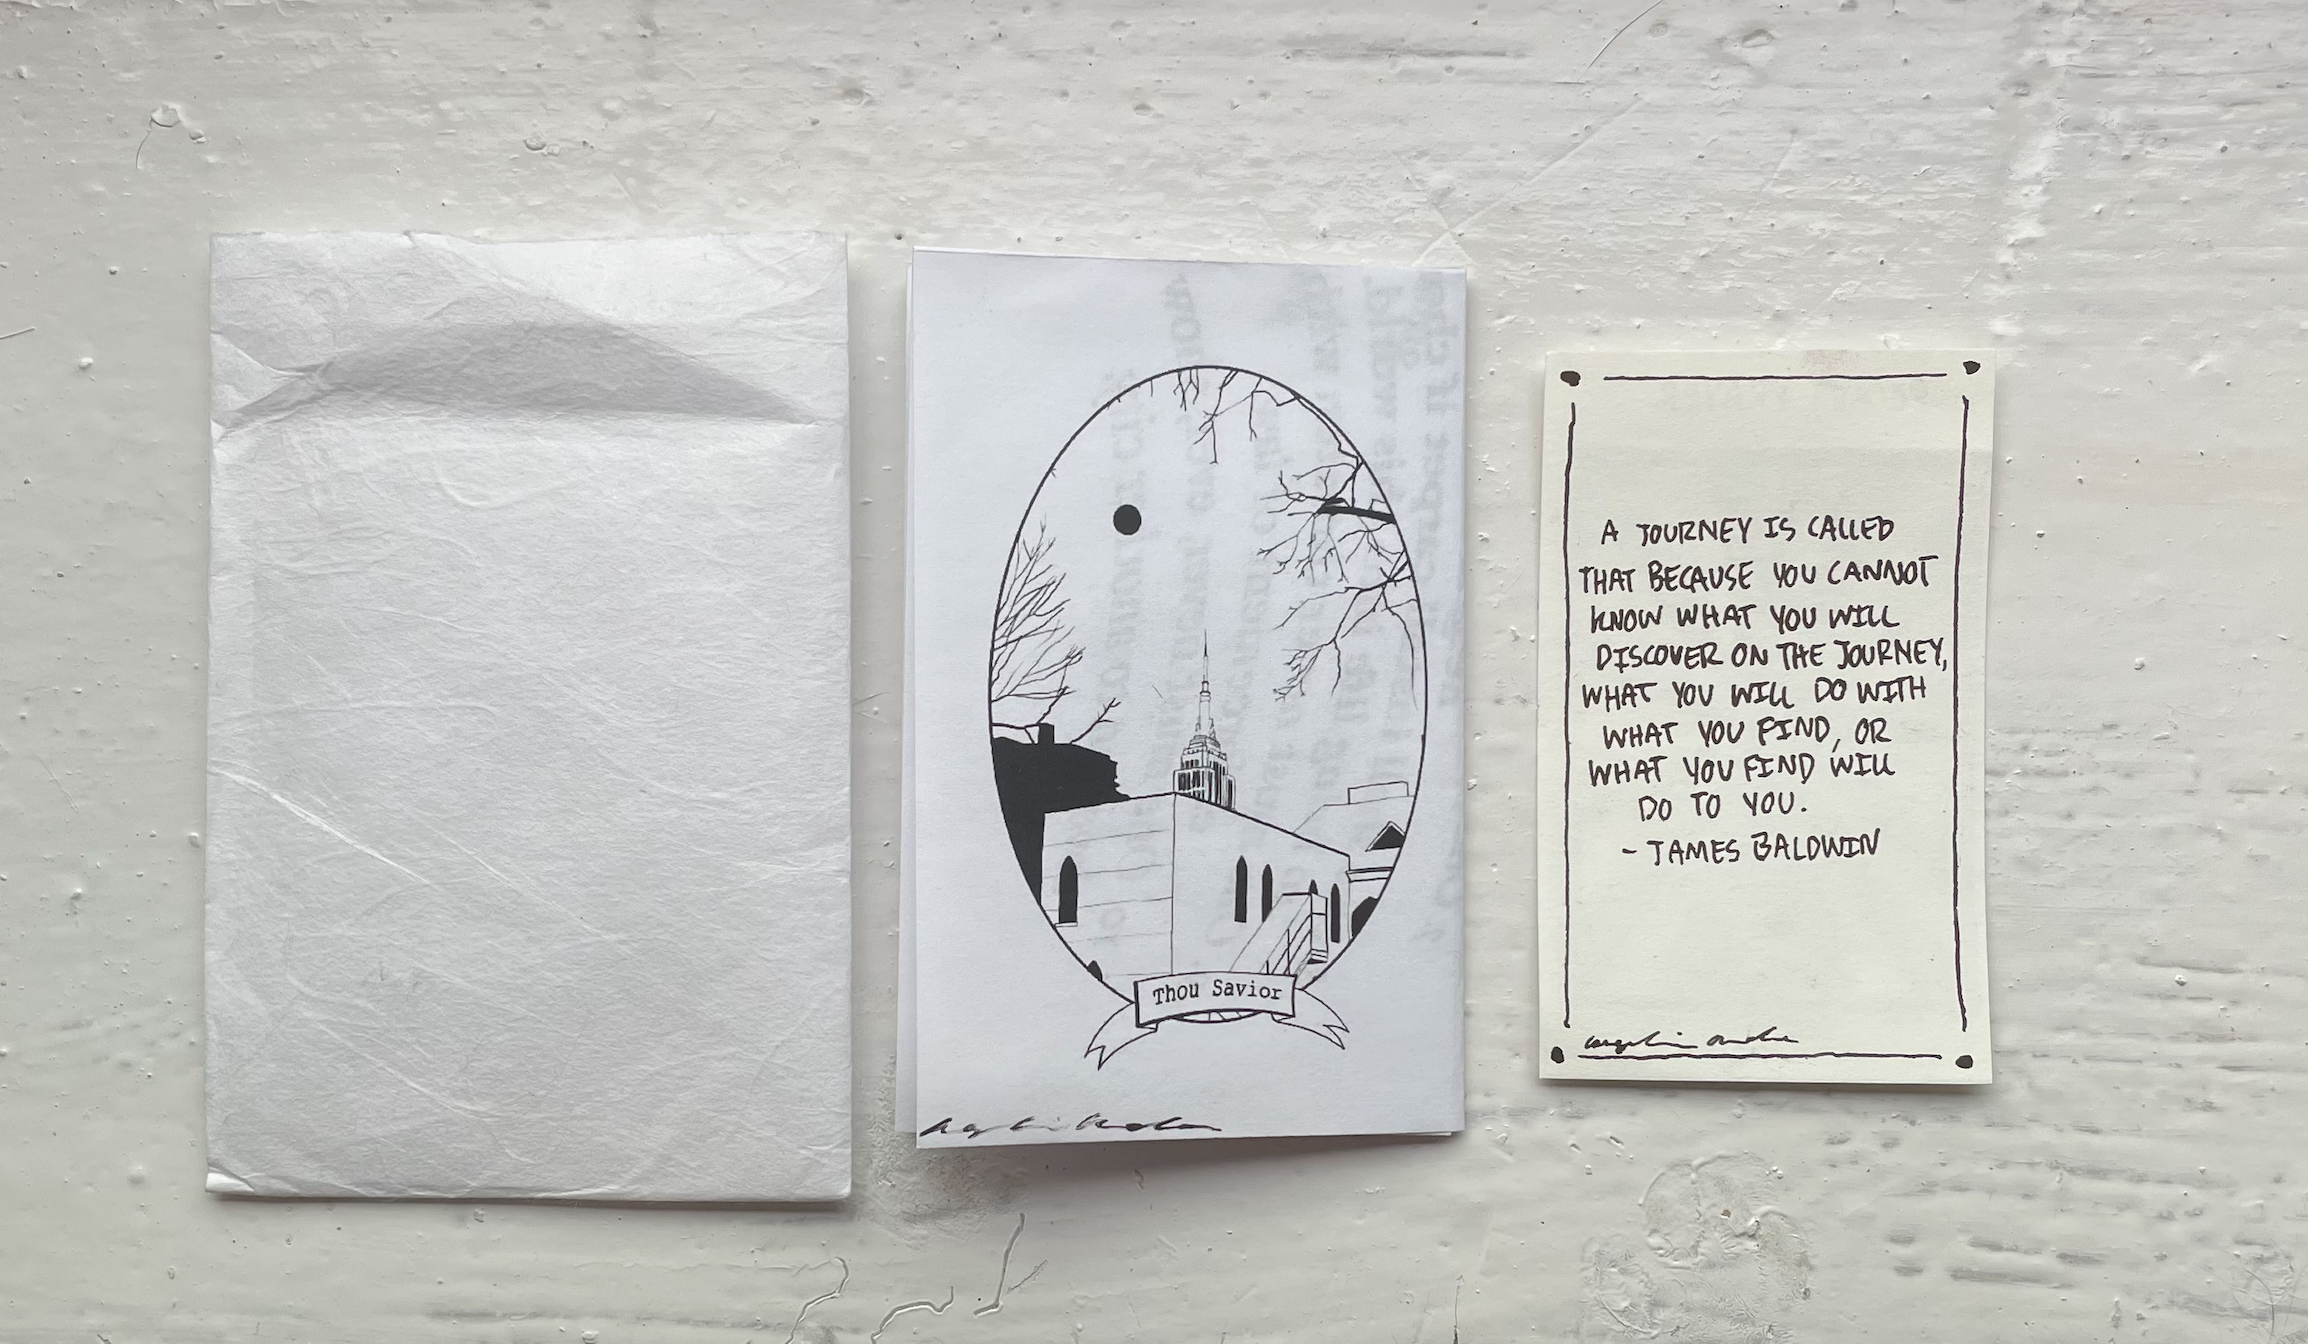 Thou Savior
A JOURNEY IS CALLED
THAT BECAUSE YOU CANNOT
KNOW WHAT YOU WILL
DISCOVER ON THE JOURNEY,
WHAT YOU WILL DO WITH
WHAT YOU FIND, OR
WHAT YOU FIND WILL
DO TO YOU.
- JAMES BALDWIN